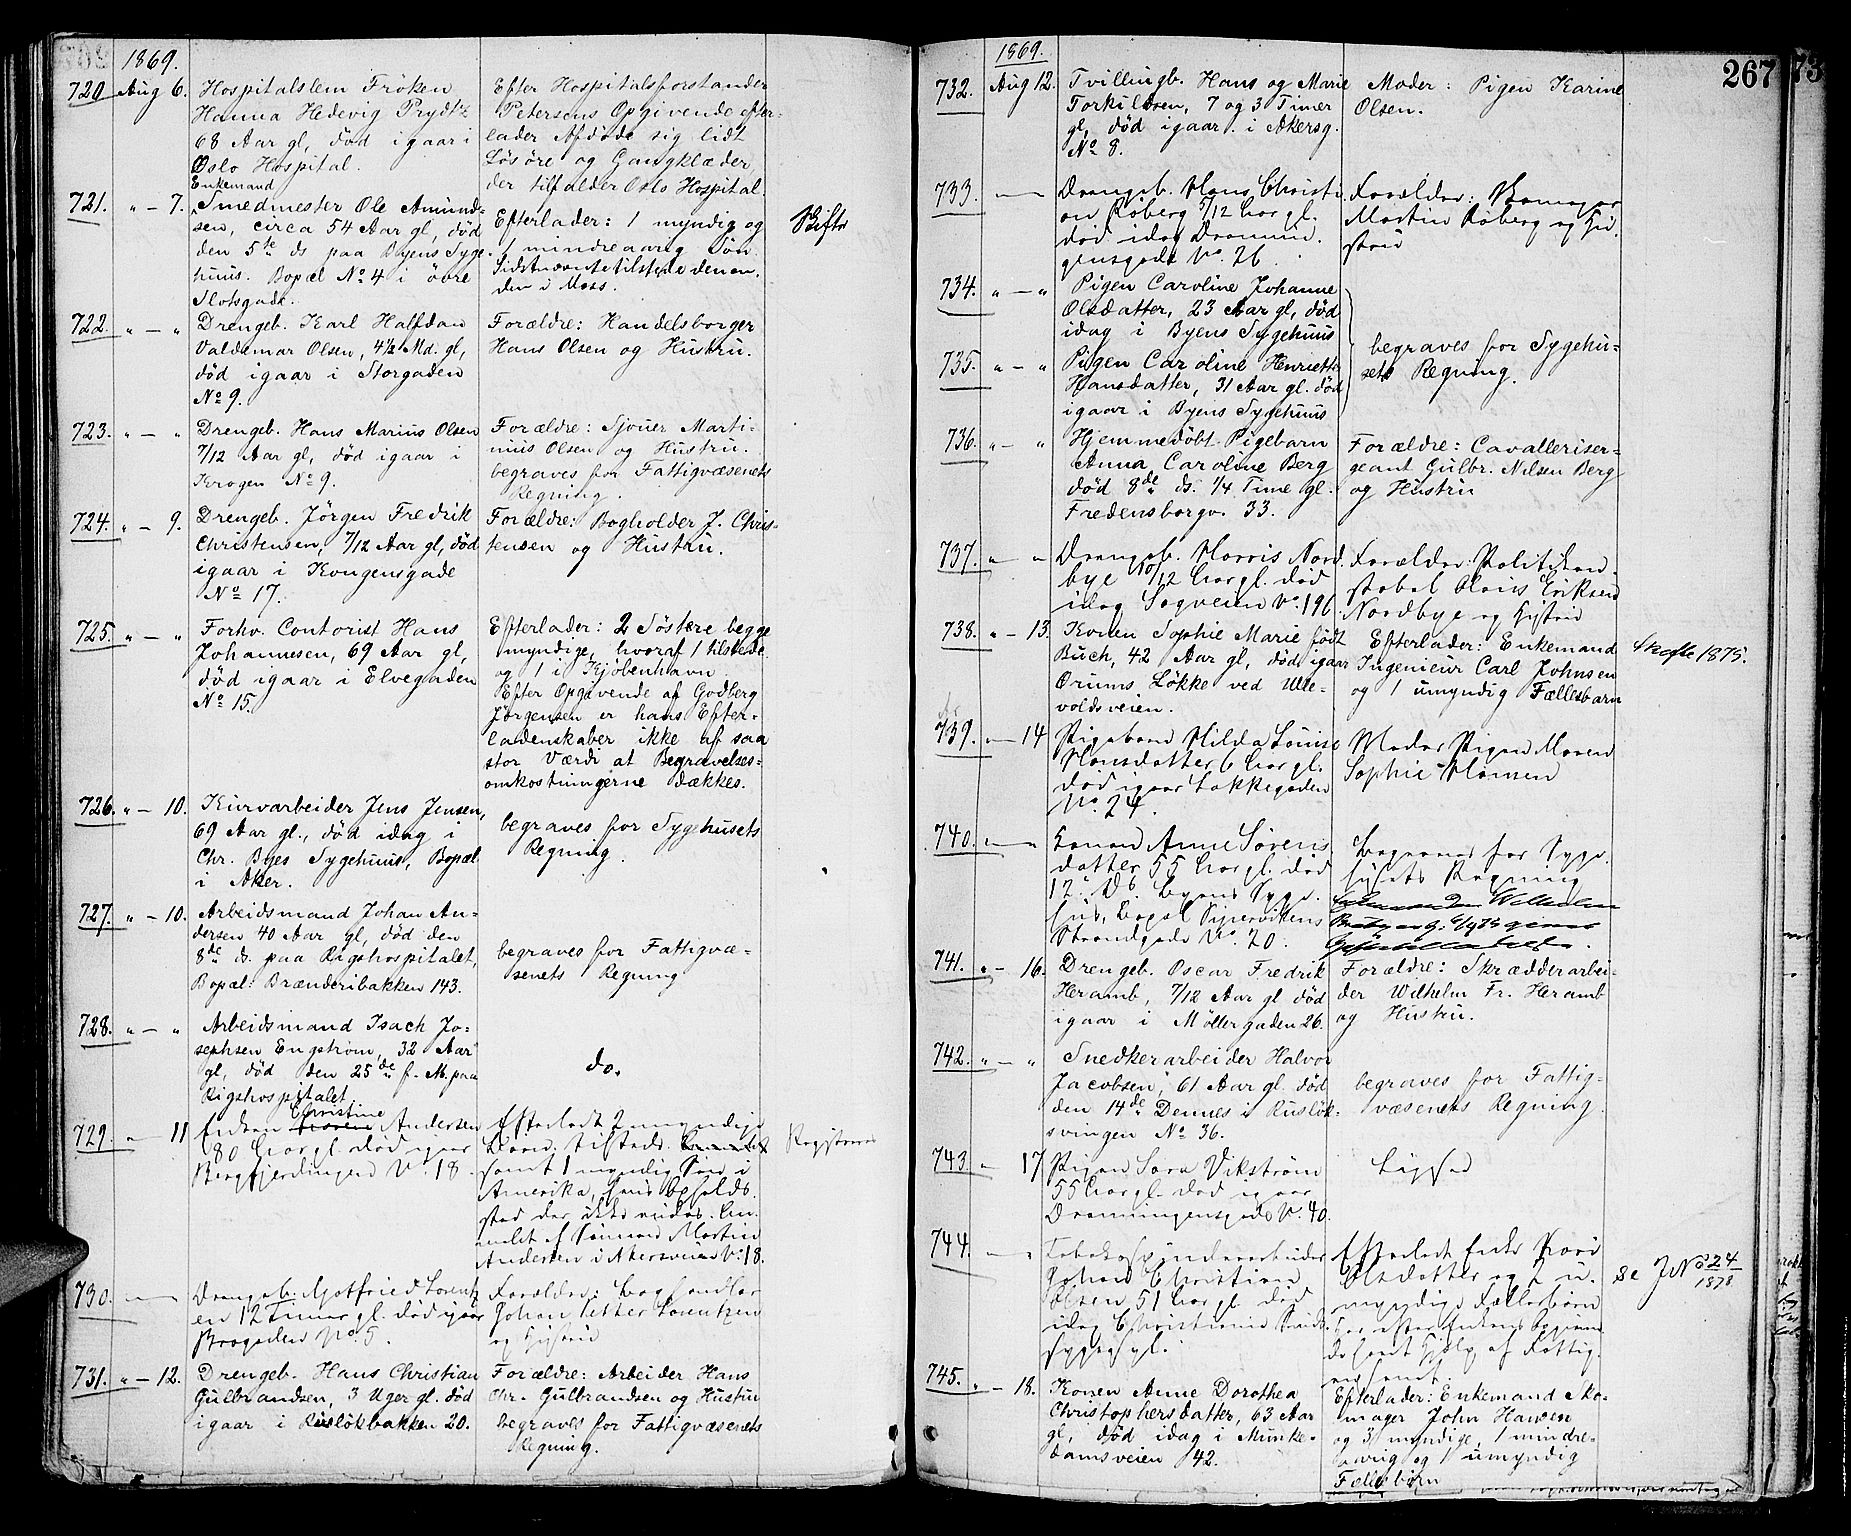 1869.
720 Aug 6. Hospitalslem Fröken
Hanna Hedevig Prydtz
68 Aar gl, död igaar i
Oslo Hospital.
Efter Hospitalsforstander
Petersens Opgivende efter-
lader Afdøde sig lidt
Løsöre og Gangklæder
der tilfalder Oslo Hospital.
721. " - 7. Enkemand
Smedmester Ole Amund-
sen, circa 54 Aar gl, död
den 5te ds paa Byens Syge-
huus. Bopæl No 4 i övre
Slotsgade.
Efterlader: 1 myndig og
1 mindreaarig Sön.
Sidstnævnte tilstede den an-
den i Moss.
Skifte
722. " - " Drengeb. Karl Halfdan
Valdemar Olsen, 4½ Md. gl,
död igaar i Storgaden
No 9.
Forældre: Handelsborger
Hans Olsen og Hustru.
723. " - " Drengeb. Hans Marius Olsen
7/12 Aar gl, död igaar i
Krogen No 9.
Forældre: Sjouer Marti-
nius Olsen og Hustru.
begraves for Fattigvæsenets
Regning.
724. " - 9. Drengeb. Jörgen Fredrik
Christensen, 7/12 Aar gl, död
igaar i Kongensgade
No 17.
Forældre: Bogholder J. Chris-
tensen og Hustru.
725. " - " Forhv. Contorist Hans
Johannesen, 69 Aar gl,
död igaar i Elvegaden
No 15.
Efterlader: 2 Söstre begge
myndige, hvoraf 1 tilstede
og 1 i Kjöbenhavn.
Efter Opgivende af Godberg
Jörgensen er hans Efter-
ladenskaber ikke af saa
stor Værdi at Begravelses-
omkostningerne dækkes.
726. " - 10. Kurvarbeider Jens Jensen,
69 Aar gl., död idag i
Chr. Byes Sygehuus, Bopæl
i Aker.
begraves for Sygehusets
Regning.
727. " - 10. Arbeidsmand Johan An-
dersen 40 Aar gl, död den
8de ds. paa Rigshospitalet,
Bopæl: Brænderibakken 143.
begraves for Fattigvæ-
senets Regning
728. " - " Arbeidsmand Isach Jo-
sephsen Engström, 32 Aar
gl, död den 25de f. M. paa
Rigshospitalet
do.
729. " 11 Enken Christine Andersen
80 Aar gl. död igaar
Bergfjerdingen No 18.
Efterladt 2 umyndige
Börn, tilstede
samt 1 myndig Sön i
Amerika, hvis Opholds-
sted der ikke vides. An-
meldt af Sönnen Martin
Andersen i Akersveien No 18.
Registreres
730. — Drengeb. Gotfried Lorentz-
en 12 Timer gl. död igaar
Brogaden No 5.
Forældre: Boghandler
Johan Petter Lorentzen
og Hustru
731. " - 12. Drengeb. Hans Christian
Gulbrandsen, 3 Uger gl. död
igaar i Rusløkbakken 20.
Forældre: Arbeider Hans
Chr. Gulbrandsen og Hustru
begraves for Fattigvæsenets
Regning.
267
1869.
732. Aug 12. Tvillingb. Hans og Marie
Torkildsen, 7 og 3 Timer
gl, död igaar i Akersg.
No 8.
Moder: Pigen Karine
Olsen.
733. — Drengeb. Hans Christi
an Röberg 5/12 Aar gl.
död idag Dronnin-
gensgade No 26.
Forældre: Skomager
Martin Röberg og Hu-
stru
734. " - " Pigen Caroline Johanne
Olsdatter, 23 Aar gl, död
idag i Byens Sygehuus
735. " - " Pigen Caroline Henriette
Hansdatter, 31 Aar gl. död
igaar i Byens Sygehuus
begraves for Sygehu-
sets Regning.
736. " - " Hjemmedöbt Pigebarn
Anna Caroline Berg
död 8de ds. 1/4 Time gl.
Fredensborgv. 33.
Forældre: Cavalleriser-
geant Gulbr. Nilsen Berg
og Hustru
737. " " Drengeb. Harris Nord-
bye 10/12 Aar gl. död
idag Sagveien No 196.
Forældre: Politikon-
stabel Claus Eriksen
Nordbye og Hustru
738. " - 13. Konen Sophie Marie födt
Buch, 42 Aar gl, död igaar
Örums Løkke ved Ulle-
voldsveien.
Efterlader: Enkemand
Ingenieur Carl Johnsen
og 1 umyndig Fællesbarn
Skifte 1875.
739. " - 14 Pigebarn Hilda Louise
Hansdatter 6 Aar gl.
död igaar Lakkegaden
No 24.
Moder Pigen Maren
Sophie Hansen
740. — Konen Anne Sörens
datter 55 Aar gl. död
12. ds. Byens Syge-
hus, Bopæl Pipervikens
Strandgade No 20.
Begraves for Syge-
husets Regning
741. " - 16. Drengeb. Oscar Fredrik
Heramb, 7/12 Aar gl död
igaar i Möllergaden 26.
Forældre: Skrædderarbei-
der Wilhelm Fr. Heramb
og Hustru.
742. " - " Snedkerarbeider Halvor
Jacobsen, 61 Aar gl. död
den 14de Dennes i Rusløk-
svingen No 36.
begraves for Fattig-
væsenets Regning.
743 " 17 Pigen Sara Vikström
55 Aar gl. död igaar
Dronningensgade No 40.
744. — " Tobakspinderarbeider
Johan Christian
Olsen 51 Aar gl. död
idag Christiania Sinds-
sygeasyl.
Efterladt Enke Kari
Olsdatter og 2 u-
myndige Fællesbörn
Har efter Enkens Opgivende
havt Hjelp af Fattig-
væsenet.
Se JNo 324/1878
745. " - 18. Konen Anne Dorothea
Christophersdatter, 63 Aar
gl, död idag i Munke-
damsveien 42.
Efterlader: Enkemand Sko-
mager John Hansen
og 3 myndige, 1 mindre-
aarig og 1 umyndig
Fellesbörn